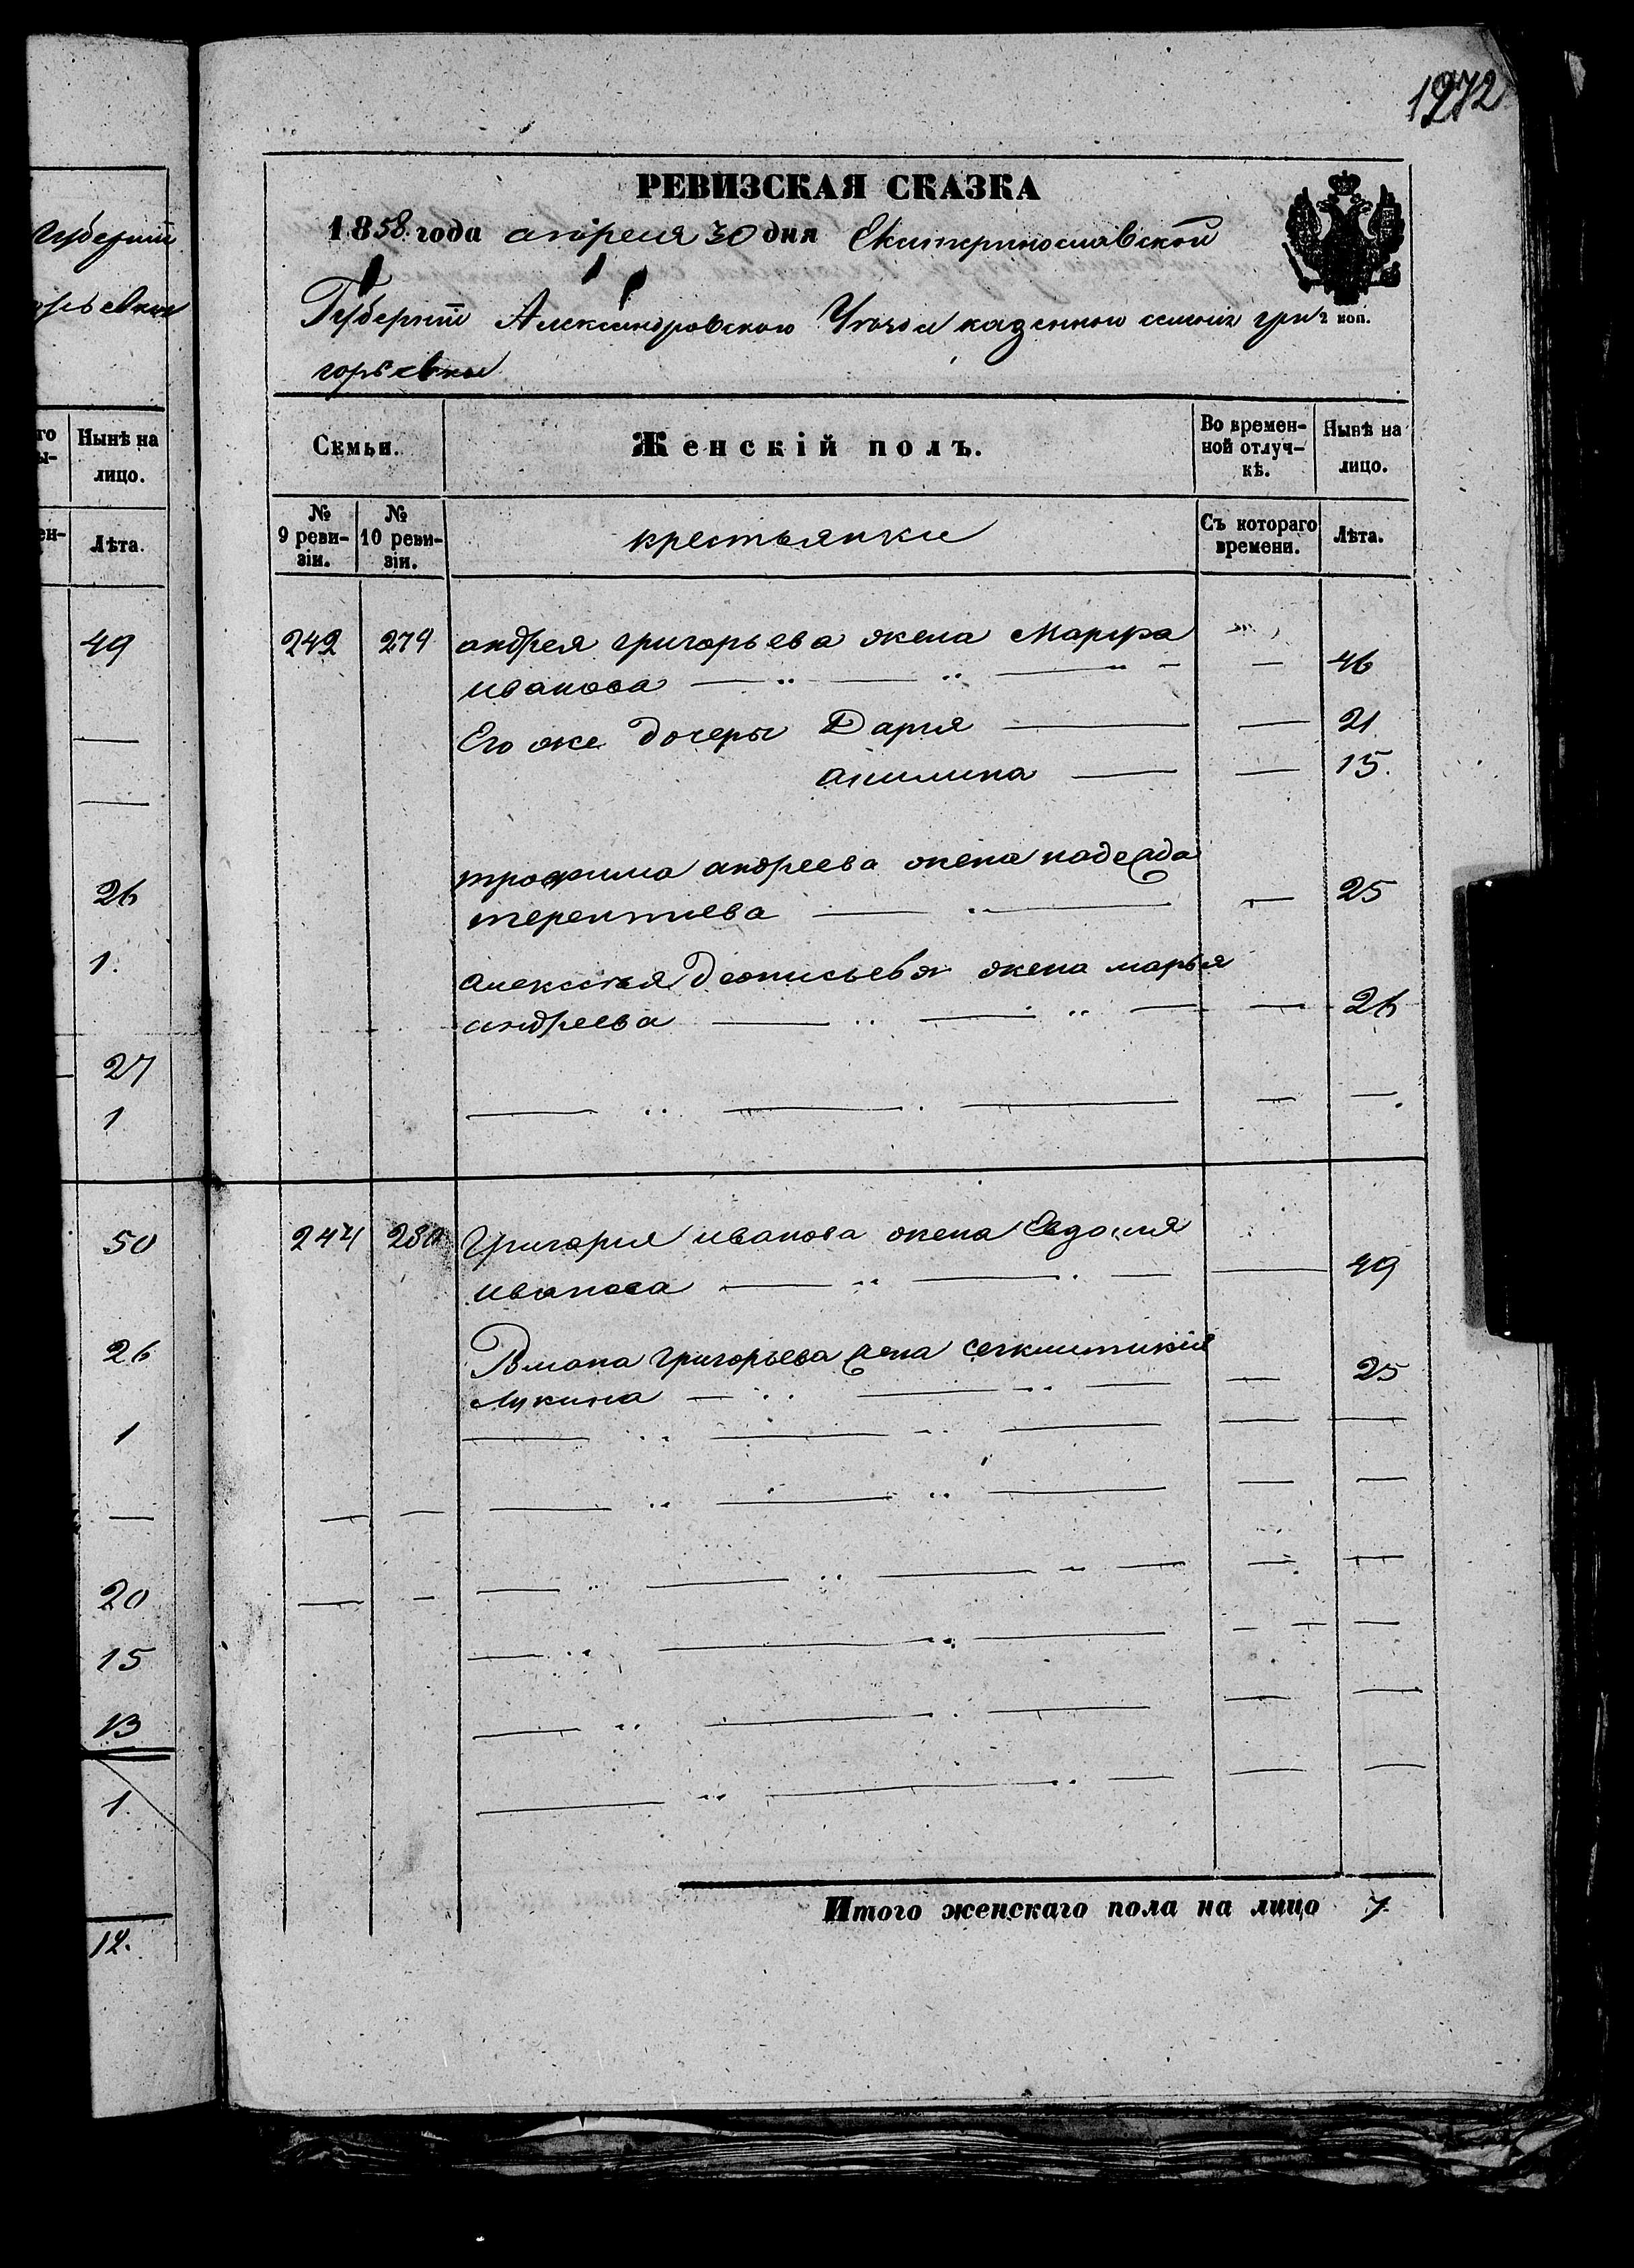 1972
РЕВИЗСКАЯ СКАЗКА
1858 года апреля 30 дня Екатеринославской
Губернии Александровского Уезда казенного селения гри
2 коп.
горьевки
Семьи.
Женскій полъ.
Во времен-
ной отлуч-
кѣ.
Нынѣ на
лицо.
№
9 реви-
зіи.
№
10 реви-
зіи.
крестьянки
Съ котораго
времени.
Лѣта.
242 279 андрея григорьева жена Марфа
иванова — — — — 46
Его же дочери Дария — — 21
акилина — — 15.
трофима андреева жена надежда
терентиева — — — 25
алексея Деонисьева жена марья
андреева — — — — 26
244 280 Григория иванова жена Евдокия
иванова — — — — 49
григорьева жена
Лукина — — — — 25
Итого женскаго пола на лицо 7
Губернии
орьевки
го
ы-
Нынѣ на
лицо.
ен-
Лѣта.
49
—
—
26
1.
27
1
50
26
1
—
20
15
13
1.
12.